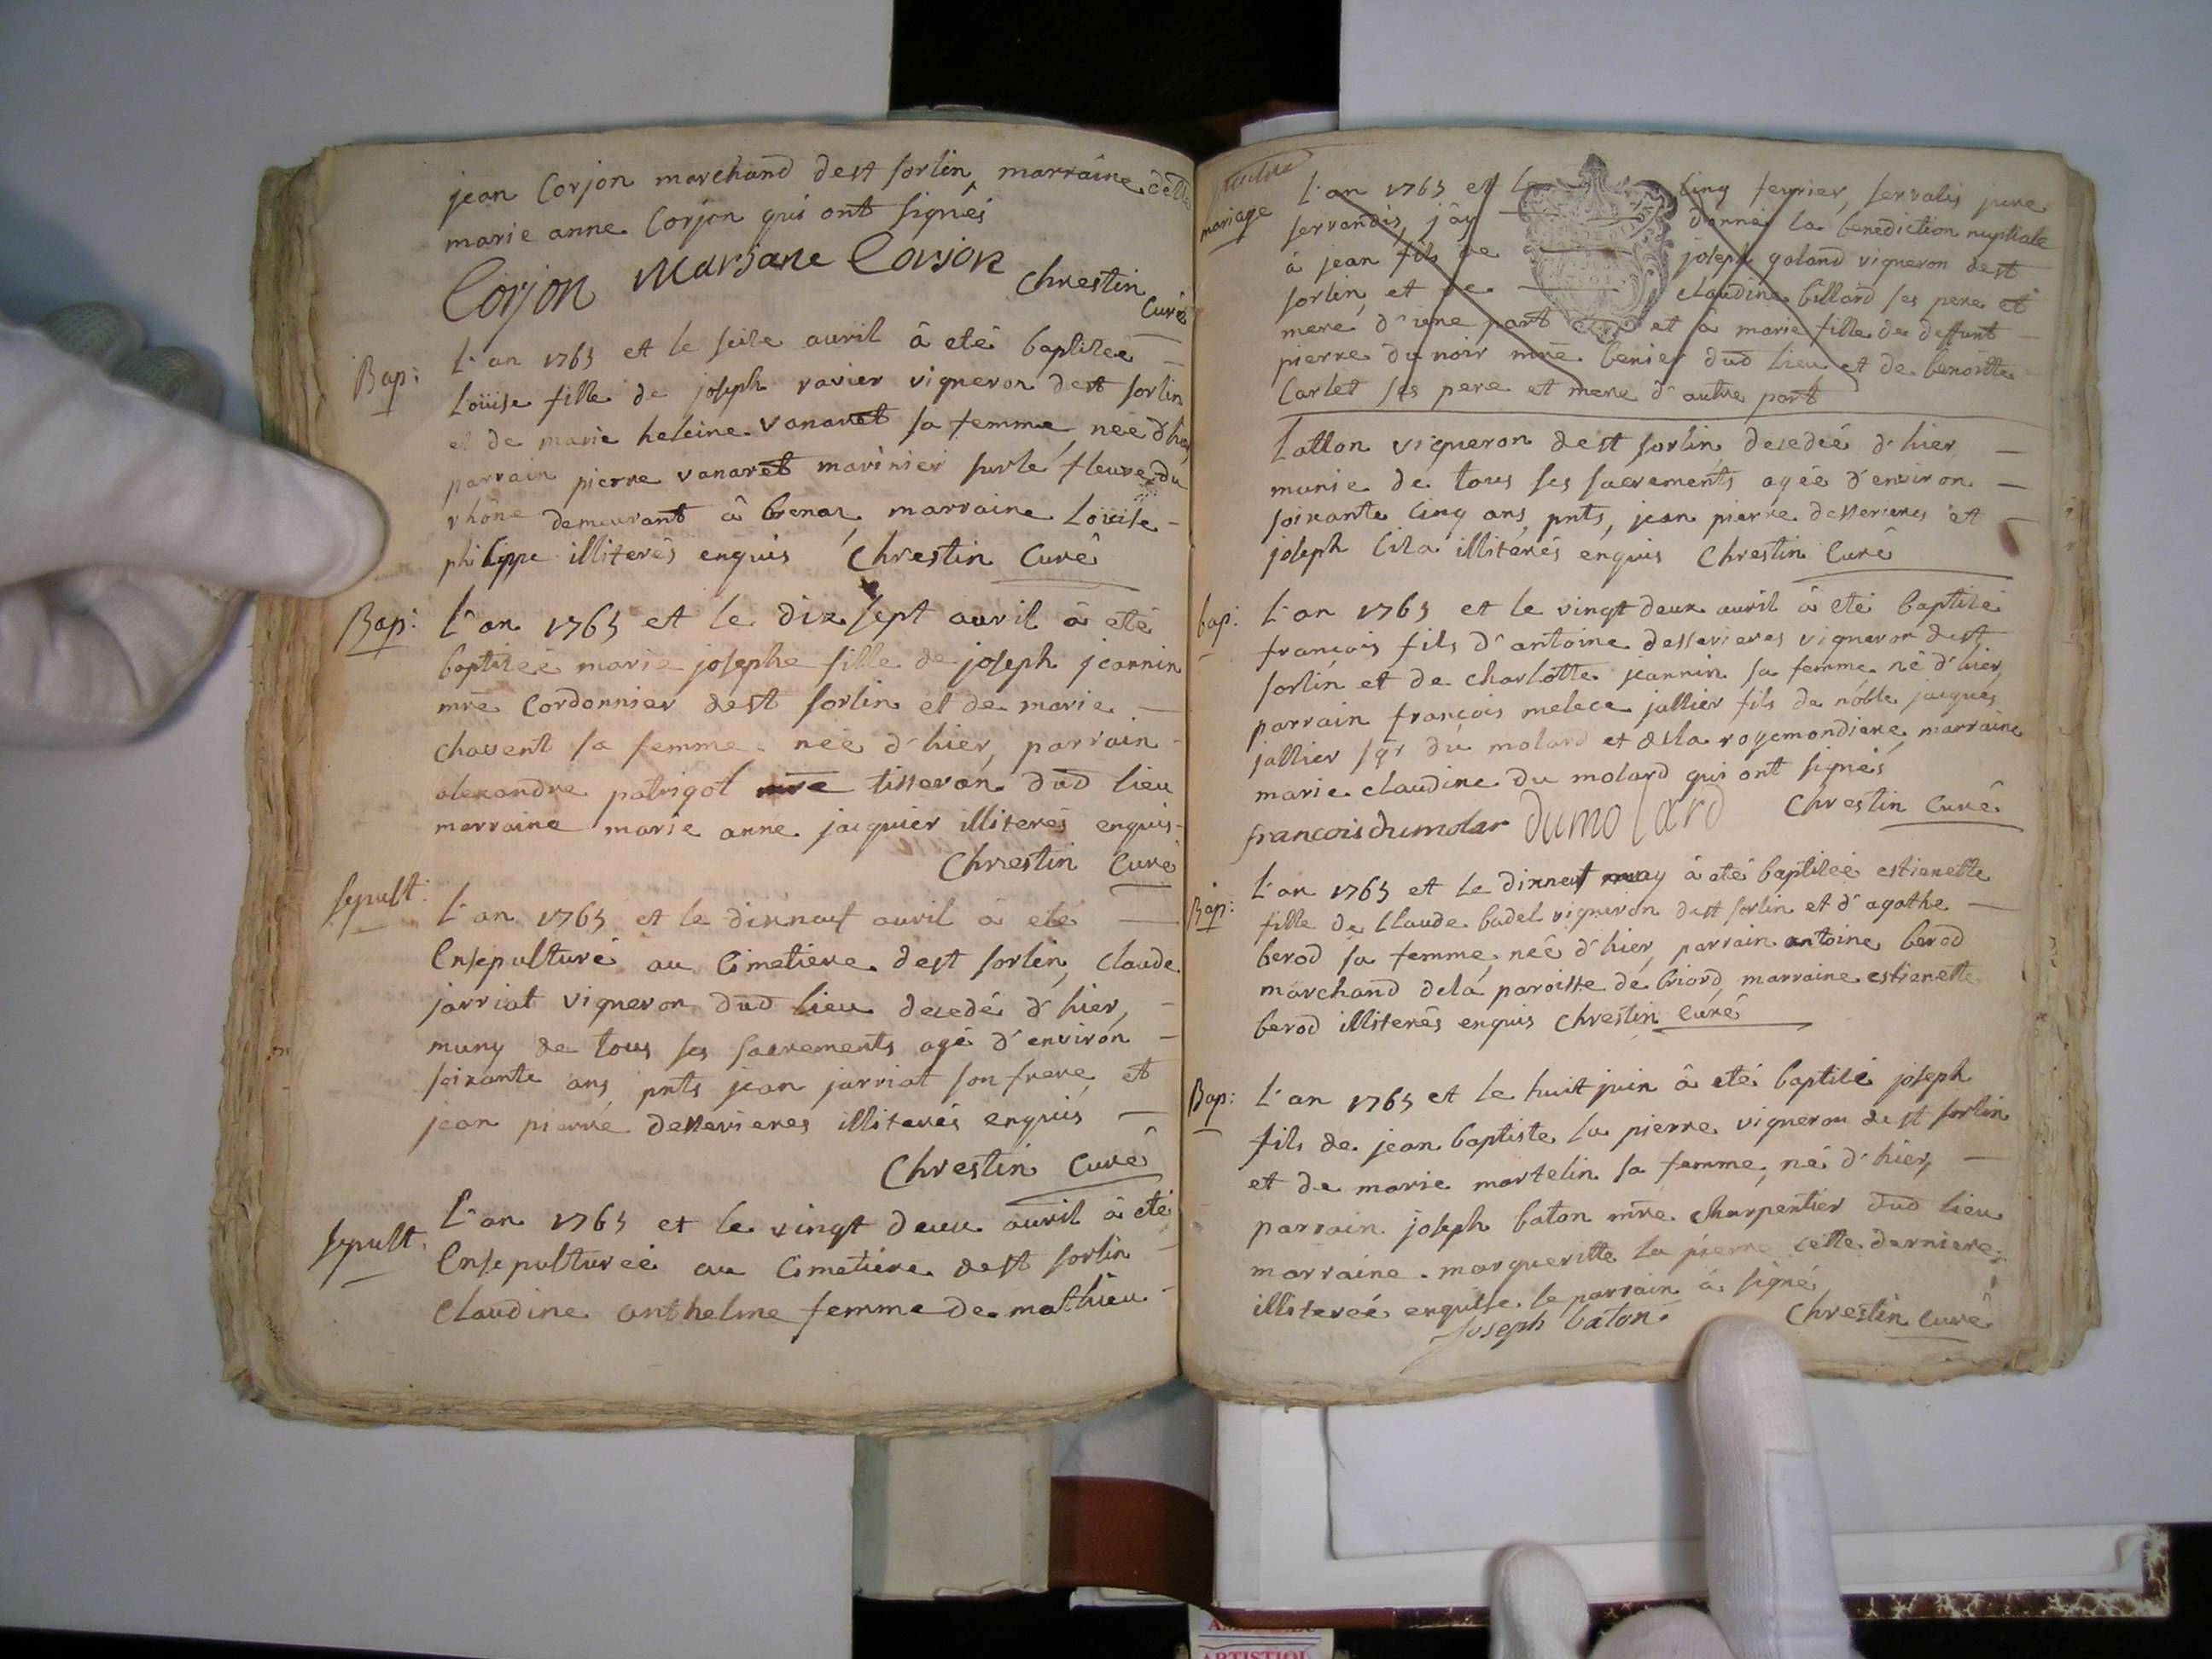 jean Corjon marchand dest sorlin, marraine
marie anne Corjon qui ont signés
Corjon Mariane Corion Chrestin
Curé
Bap: L'an 1765 et le seise auril â eté baptiseé
Loüise fille de joseph ravier vigneron dest sorlin
et de marie heleine vanaret sa femme, neé d'hier,
parrain pierre vanaret marinier sur le fleuve du
rhône demeurant â brenaz, marraine Loüise
philippe illiterés enquis Chrestin Curé
Bap: L'an 1765 et le dix sept auril â eté
baptiseé marie josephe fille de joseph jeannin
mre Cordonnier dest sorlin et de marie
chavent sa femme neé d'hier, parrain
alexandre patrigot tisseran dud lieu
marraine marie anne jaquier illiterés enquis
Chrestin Curé
sepult: L'an 1765 et le dixneuf auril â eté
Ensepulturé au Cimetiere dest sorlin, Claude
jarriat vigneron dud lieu decedé d'hier,
muny de tous ses sacrements agé d'environ
soixante ans, pnts jean jarriat son frere et
jean pierre desserieres illiterés enquis
Chrestin Curé
sepult: L'an 1765 et le vingt deux auril â eté
Ensepultureé au Cimetiere dest sorlin
Claudine anthelme femme de mathieu
mariage L'an 1765 et le cinq feurier, servatis jure
servandis, j'ây donné la benediction nuptiale
â jean fils de joseph galand vigneron dest
sorlin, et de claudine billard ses pere et
mere d'une part et â marie fille de deffunt
pierre du noir mre dud lieu et de benoitte
Carlet ses pere et mere d'autre part
Lallon vigneron dest sorlin, decedeé d'hier,
munie de tous ses sacrements ageé d'environ
soixante cinq ans, pnts, jean pierre desserieres et
joseph illiterés enquis Chrestin Curé
bap: L'an 1765 et le vingt deux auril â eté baptisé
françois fils d'antoine desserieres vigneron dest
sorlin et de charlotte jeannin sa femme né d'hier,
parrain françois melece jallier fils de noble jacques
jallier sgr du molard et dela rogemondiere, marraine
marie claudine du molard qui ont signés
francois dumolar dumolard Chrestin Curé
Bap: L'an 1765 et le dixneuf may â eté baptiseé estienette
fille de Claude badel vigneron dest sorlin et d'agathe
berod sa femme, neé d'hier, parrain antoine berod
marchand dela paroisse de briord, marraine estienette
berod illiterés enquis Chrestin Curé
Bap: L'an 1765 et le huit juin â eté baptisé joseph
fils de jean baptiste la pierre vigneron dest sorlin
et de marie martelin sa femme, né d'hier,
parrain joseph baton mre charpentier dud lieu
marraine margueritte la pierre cette derniere
illitereé enquise le parrain â signé
Joseph baton Chrestin Curé